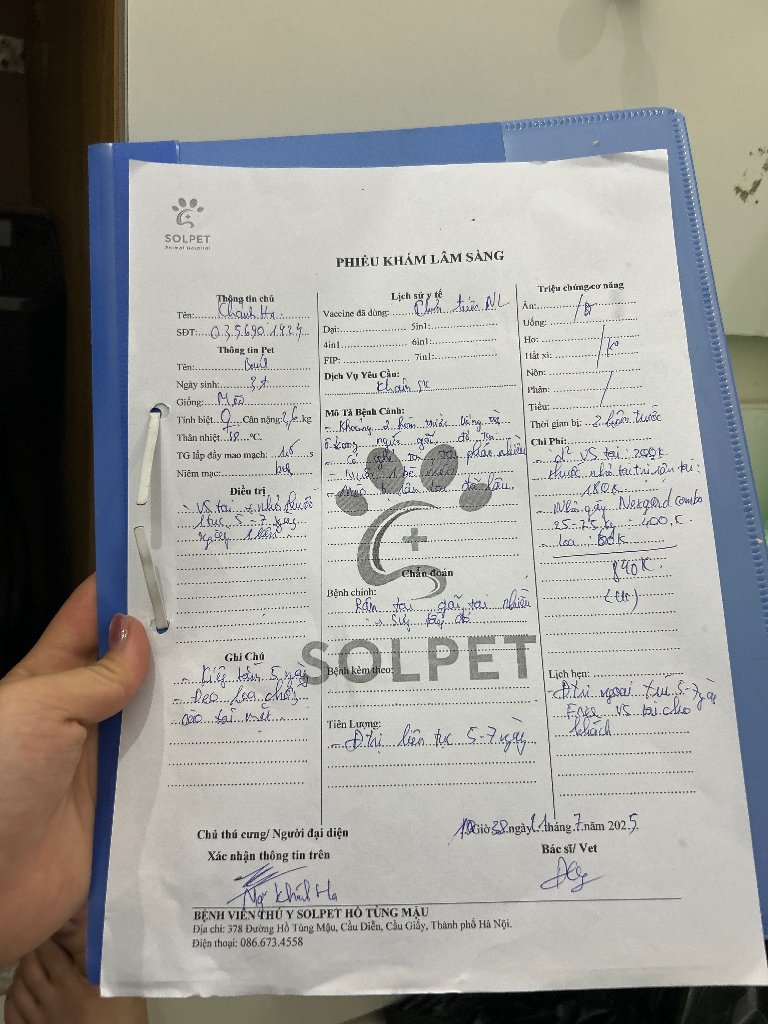 SOLPET
Animal Hospital
PHIẾU KHÁM LÂM SÀNG
Thông tin chủ
Tên: Khánh Hạ
SĐT: 035.690.1924
Thông tin Pet
Tên:
Ngày sinh: 3t
Giống: Mèo
Tính biệt ♀ Cân nặng: 2,6 kg
Thân nhiệt °C.
TG lấp đầy mao mạch: 1,5 s
Niêm mạc:
Điều trị
- VS tai + nhỏ thuốc
5-7 ngày
ngày 1 lần
Ghi Chú
- Kiêng tắm 5 ngày
- Đeo loa chống
cào tai mắt
Lịch sử y tế
Vaccine đã dùng: Chưa tiêm NL
Dại: 5in1:
4in1 6in1:
FIP: 7in1:
Dịch Vụ Yêu Cầu:
Khám SK
Mô Tả Bệnh Cảnh:
- Khoảng 2 hôm trước
- Có nhiều
- Nuôi 1 bé
Chẩn đoán
Bệnh chính:
Rận tai gãi tai nhiều
đỏ
SOLPET
Bệnh kèm theo:
Tiên Lượng:
- Đtrị liên tục 5-7 ngày
Triệu chứng cơ năng
Ăn:
Uống:
Ho: ko
Hắt xì:
Nôn:
Phân:
Tiểu:
Thời gian bị: 2 hôm trước
Chi Phí:
- VS tai: 200K
- thuốc nhỏ tai trị rận tai:
180K
- Nhỏ gáy Nexgard combo
2,5-7,5 kg: 400K
- loa 60K
840K
Lịch hẹn:
Đtrị ngoại trú 5-7 ngày
Free VS tai cho
khách
Giờ 38 ngày 11 tháng 7 năm 2025
Chủ thú cưng/ Người đại diện
Xác nhận thông tin trên
Ng Khánh Hạ
Bác sĩ/ Vet
BỆNH VIỆN THÚ Y SOLPET HỒ TÙNG MẬU
Địa chỉ: 378 Đường Hồ Tùng Mậu, Cầu Diễn, Cầu Giấy, Thành phố Hà Nội.
Điện thoại: 086.673.4558